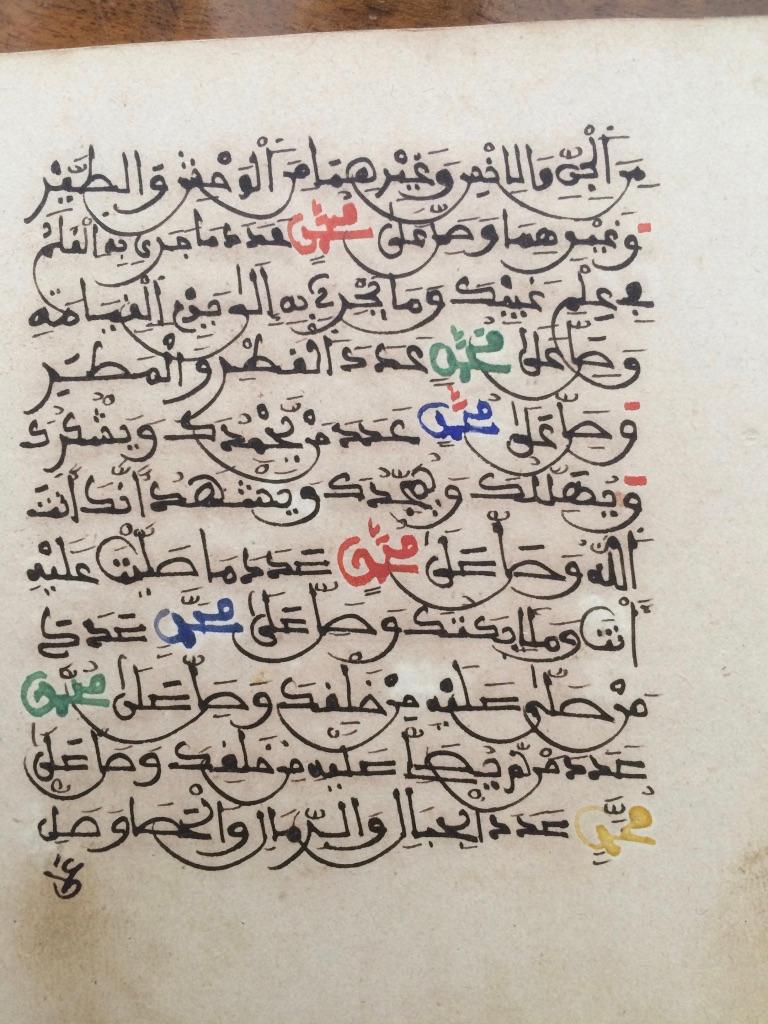 مِنَ الْجِنِّ وَالْإِنْسِ وَغَيْرِهِمَا مِنَ الْوَحْشِ وَالطَّيْرِ
وَغَيْرِهِمَا وَصَلِّ عَلَى مُحَمَّدٍ عَدَدَ مَا جَرَى بِهِ الْقَلَمُ
فِي عِلْمِ غَيْبِكَ وَمَا يَجْرِي بِهِ إِلَى يَوْمِ الْقِيَامَةِ
وَصَلِّ عَلَى مُحَمَّدٍ عَدَدَ الْقَطْرِ وَالْمَطَرِ
وَصَلِّ عَلَى مُحَمَّدٍ عَدَدَ مَنْ يَحْمَدُكَ وَيَشْكُرُكَ
وَيُهَلِّلُكَ وَيُمَجِّدُكَ وَيَشْهَدُ أَنَّكَ أَنْتَ
اللَّهُ وَصَلِّ عَلَى مُحَمَّدٍ عَدَدَ مَا صَلَّيْتَ عَلَيْهِ
أَنْتَ وَمَلَائِكَتُكَ وَصَلِّ عَلَى مُحَمَّدٍ عَدَدَ
مَنْ صَلَّى عَلَيْهِ مِنْ خَلْقِكَ وَصَلِّ عَلَى مُحَمَّدٍ
عَدَدَ مَنْ لَمْ يُصَلِّ عَلَيْهِ مِنْ خَلْقِكَ وَصَلِّ عَلَى
مُحَمَّدٍ عَدَدَ الْجِبَالِ وَالرِّمَالِ وَالْحَصَا وَصَلِّ